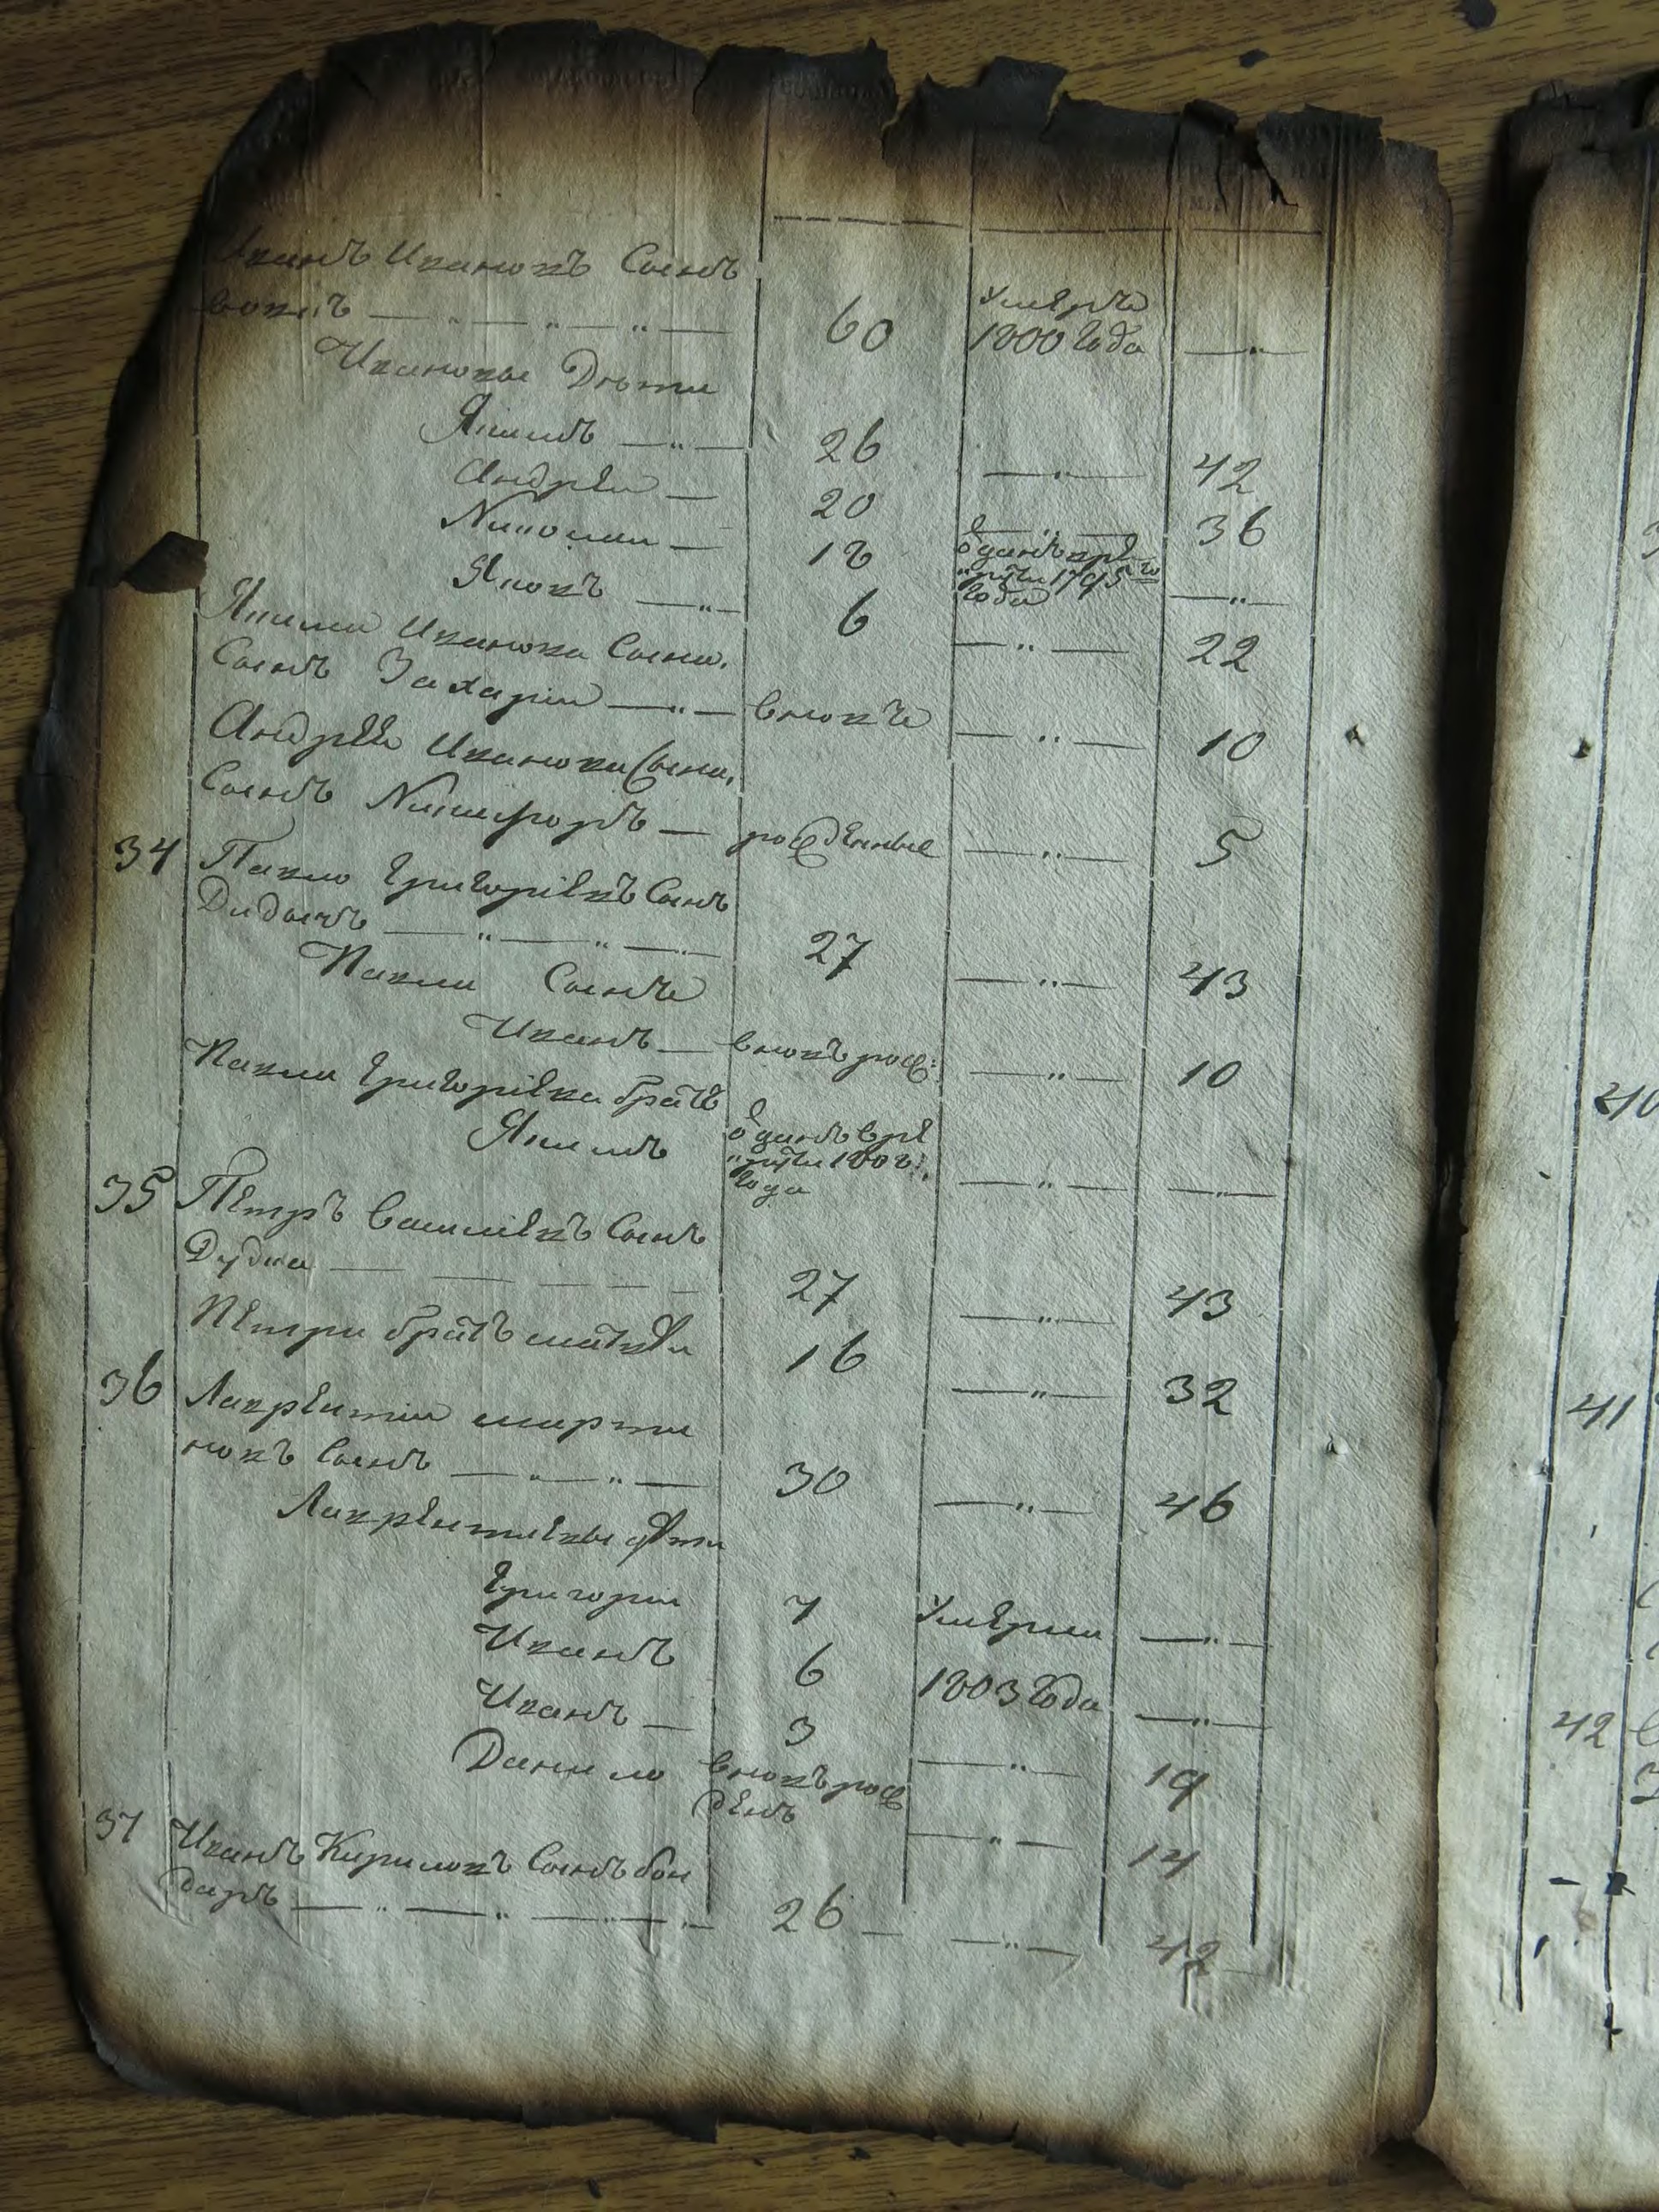 Иванъ Ивановъ Сынъ
60 Умерѣ 1800 Года —„—
Ивановы Дѣти
Якимъ —„— 26 —„— 42
Андрей — 20 —„— 36
Николай — 18 отданъ врекруты 1795го Года —„—
Яковъ —„— 6 —„— 22
Якима Иванова Сына,
Сынъ Захарій —„— вновѣ —„— 10
Андрея Иванова Сына,
Сынъ Никифоръ — рожденные —„— 5
34 Павло Григоріевъ Сынъ
Дидычъ —„—„—„— 27 —„— 43
Павла Сынъ
Иванъ — вновъ рож: —„— 10
Павла Григоріева братъ
Якимъ отданъ врекруты 1808: Года —„— —„—
35 Петръ Василіевъ Сынъ
Дудка — — — — 27 —„— 43
Петра братъ матвѣй 16 —„— 32
36 Лаврентій марти
новъ Сынъ —„—„— 30 —„— 46
Лаврентіевы дѣти
Григорій 7 Умерли —„—
Иванъ 6 1803 Года —„—
Иванъ — 3 —„— 19
Данило вновъ рож
денъ —„— 14
37 Иванъ Кириловъ Сынъ бон
даръ —„—„—„— 26 —„— 42
40
41
42